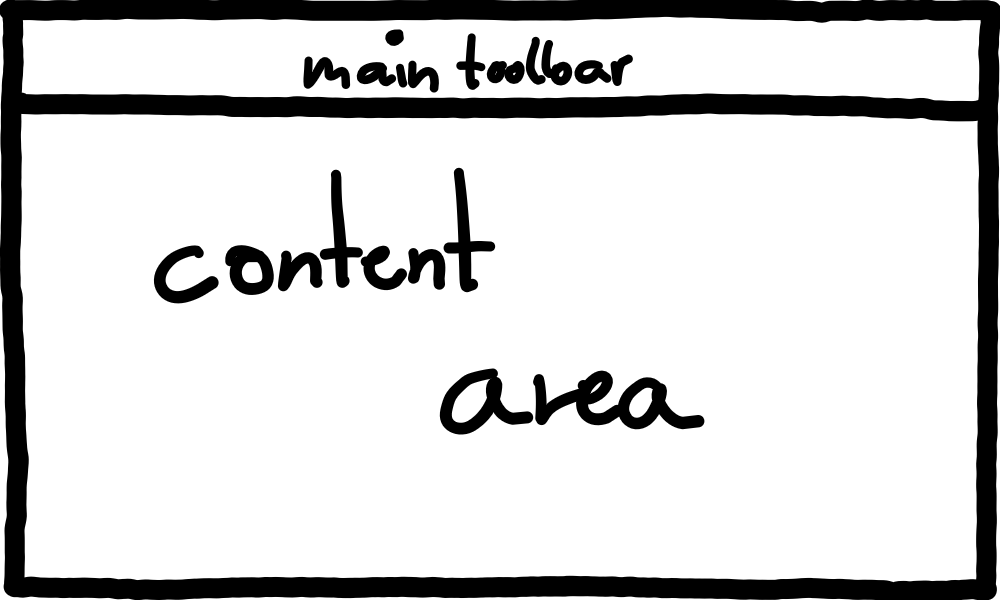 main toolbar
content
area